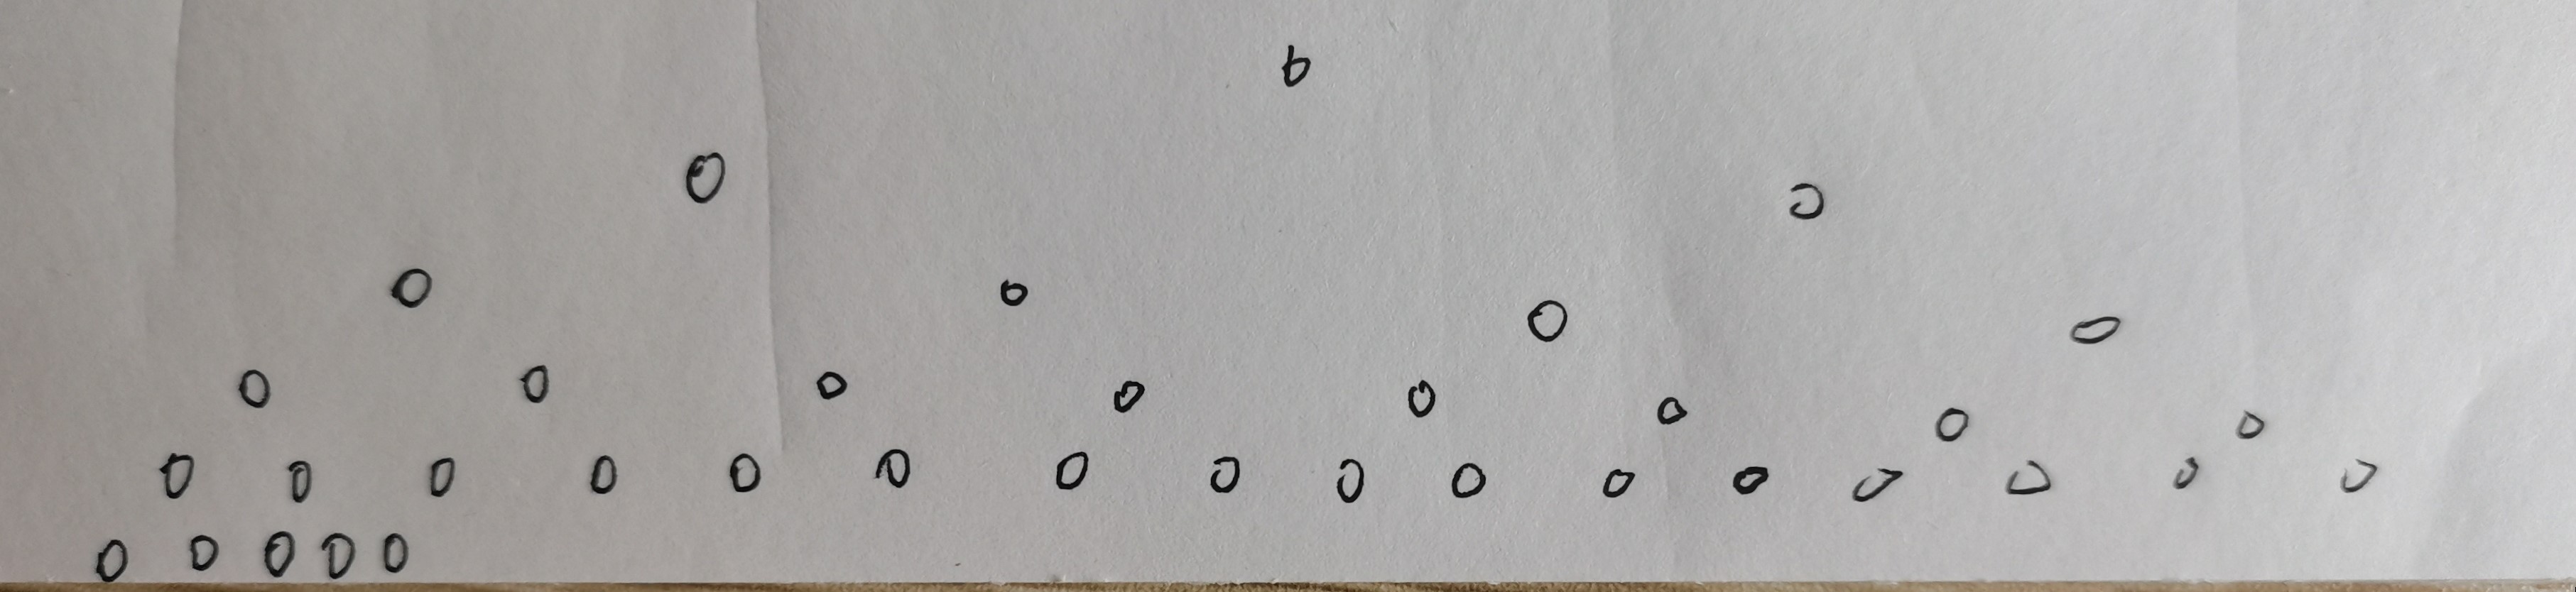 b
0 0
0 0 0 0
0 0 0 0 0 0 0 0
0 0 0 0 0 0 0 0 0 0 0 0 0 0 0 0
0 0 0 0 0